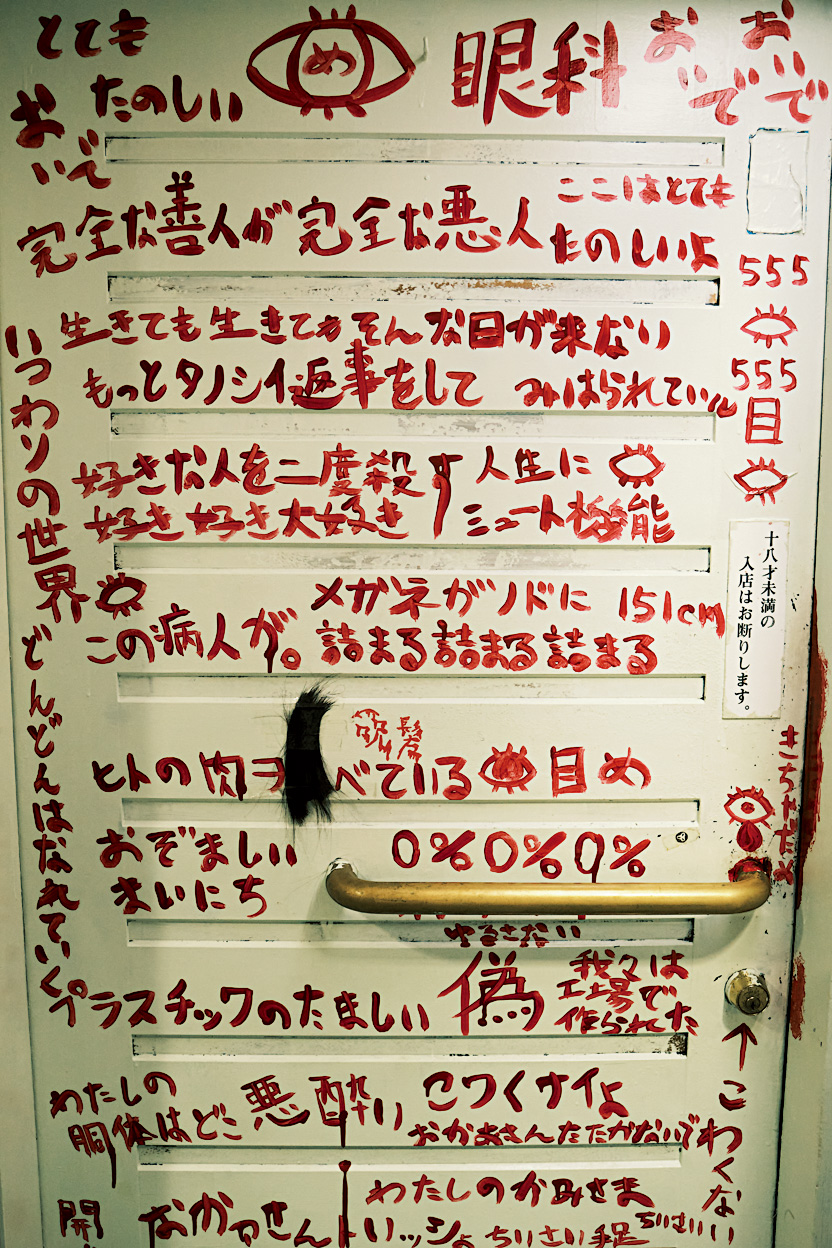 とても
たのしい
おいで
め
眼科
おいで
おいで
ここはとても
たのしいよ
完全な善人が完全な悪人
555
555
目
生きても生きてもそんな日が来ない
もっとタノシイ返事をして
みはられている
いつわりの世界どんどんはなれていく。
好きな人を二度殺す人生に
好き好き大好き
ミュート機能
十八才未満の
入店はお断りします。
この病人が。
メガネがノドに151cm
詰まる詰まる詰まる
髪
ヒトの肉ヲ
べている
目め
きちゃだめ
おぞましい
まいにち
0%0%0%
ゆるさない
プラスチックのたましい
偽
我々は
工場で
作られた
↑こわくない
わたしの
胴体はどこ
悪酔い
コワくナイよ
おかあさんたたかないで
開
なかっさん
わたしのかみさま
イッショ
ちいさい手足
ちいさい